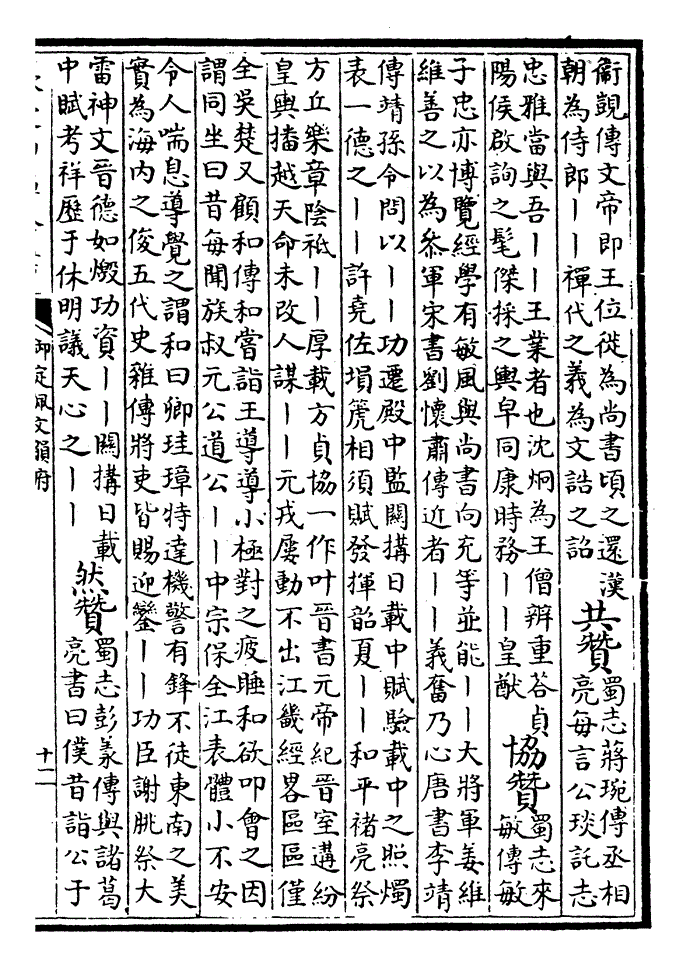 衞覬傳文帝即王位徙為尚書頃之還漢
朝為侍郎丨丨禪代之義為文誥之詔
共贊
蜀志蔣琬傳丞相
亮每言公琰託志
忠雅當與吾丨丨王業者也沈炯為王僧辨重荅貞
陽侯啟詢之髦傑採之輿皁同康時務丨丨皇猷
協贊
蜀志來
敏傳敏
子忠亦博覽經學有敏風與尚書向充等並能丨丨大將軍姜維
維善之以為叅軍宋書劉懷肅傳近者丨丨義奮乃心唐書李靖
傳靖孫令問以丨丨功遷殿中監闕搆日載中賦驗載中之照燭
表一德之丨丨許堯佐塤篪相須賦發揮韶夏丨丨和平褚亮祭
方丘樂章陰祇丨丨厚載方貞協一作叶晉書元帝紀晉室遘紛
皇輿播越天命未改人謀丨丨元戎屢動不出江畿經畧區區僅
全吳楚又顧和傳和嘗詣王導導小極對之疲睡和欲叩會之因
謂同坐曰昔每聞族叔元公道公丨丨中宗保全江表體小不安
令人喘息導覺之謂和曰卿珪璋特達機警有鋒不徒東南之美
實為海內之俊五代史雜傳將吏皆賜迎鑾丨丨功臣謝朓祭大
雷神文晉德如燬功資丨丨闕搆日載
中賦考祥歷于休明議天心之丨丨
然贊
蜀志彭羕傳與諸葛
亮書曰僕昔詣公于
御定佩文韻府
十二